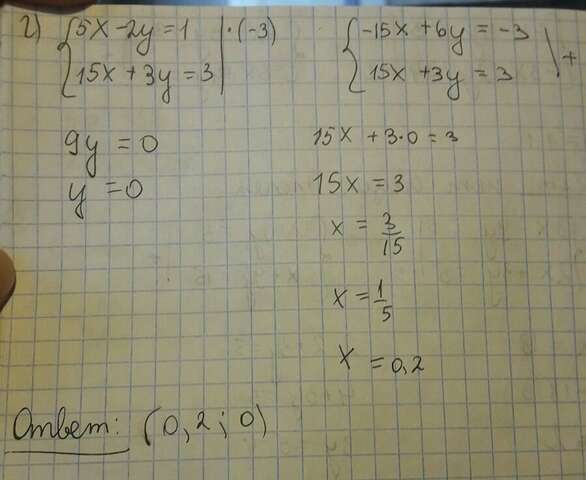 г) { 5x - 2y = 1 | · (-3)
15x + 3y = 3
{ -15x + 6y = -3
15x + 3y = 3 | +
9y = 0
y = 0
15x + 3·0 = 3
15x = 3
x = 3/15
x = 1/5
x = 0,2
Ответ: (0,2; 0)